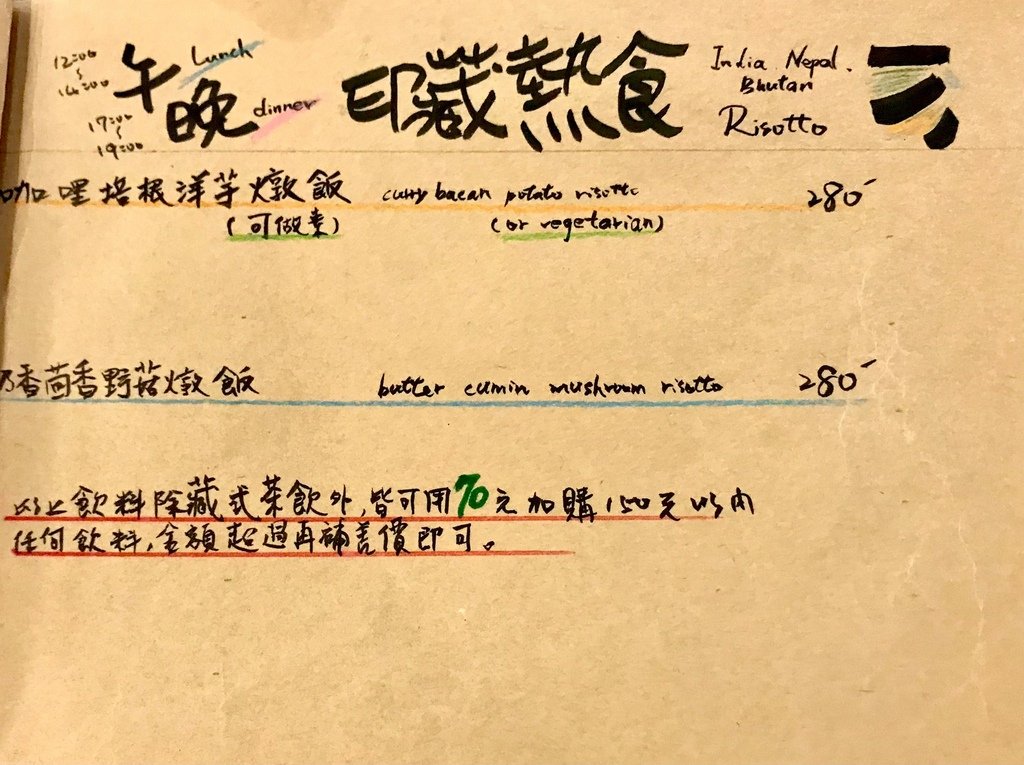 12:00
~
14:00
午 Lunch
17:00
~
19:00
晚 dinner
印藏熱食
India. Nepal.
Bhutan
Risotto
咖哩培根洋芋燉飯 curry bacan potato risotto 280
(可做素) (or vegetarian)
奶香茴香野菇燉飯 butter cumin mushroom risotto 280
以上飲料除藏式茶飲外,皆可用70元加購150元以內
任何飲料,金額超過再補差價即可。